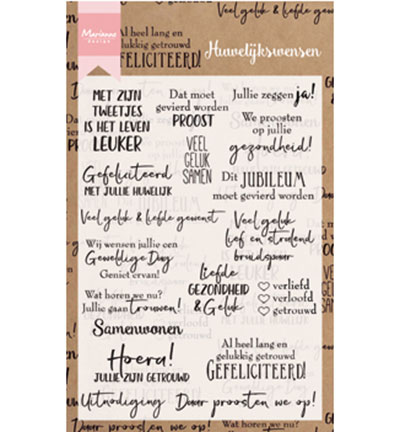 Marianne
design
Al heel lang en
gelukkig getrouwd
GEFELICITEERD!
Veel geluk & liefde gewenst
Huwelijkswensen
MET ZIJN
TWEETJES
IS HET LEVEN
LEUKER
Dat moet
gevierd worden
PROOST
Jullie zeggen ja!
We proosten
op jullie
gezondheid!
VEEL
GELUK
SAMEN
Gefeliciteerd
MET JULLIE HUWELIJK
Dit JUBILEUM
moet gevierd worden
Veel geluk & liefde gewenst
Veel geluk
lief en stralend
bruidspaar
Wij wensen jullie een
Geweldige Dag
Geniet ervan!
Liefde
GEZONDHEID
& Geluk
verliefd
verloofd
getrouwd
Wat horen we nu?
Jullie gaan Trouwen!
Samenwonen
Hoera!
JULLIE ZIJN GETROUWD
Al heel lang en
gelukkig getrouwd
GEFELICITEERD!
Uitnodiging
Daar proosten we op!